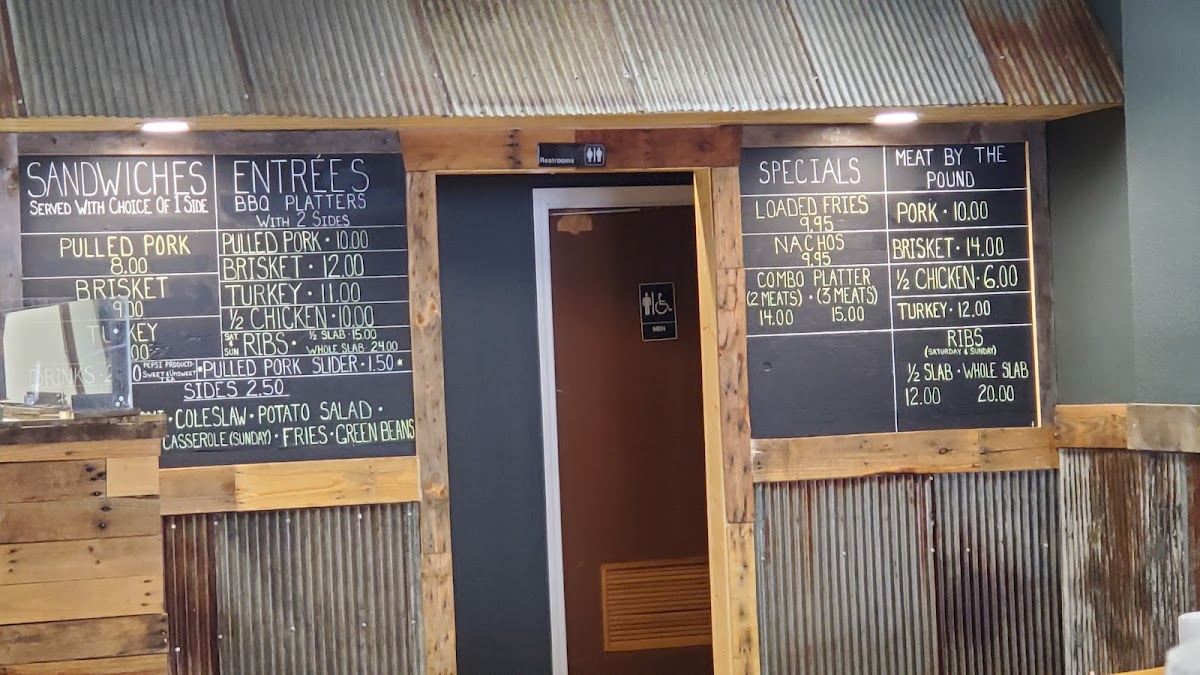 SANDWICHES
SERVED WITH CHOICE OF 1 SIDE
PULLED PORK
8.00
BRISKET
9.00
TURKEY
DRINKS · 2
PEPSI PRODUCTS
SWEET & UNSWEET
TEA
ENTRÉES
BBQ PLATTERS
WITH 2 SIDES
PULLED PORK · 10.00
BRISKET · 12.00
TURKEY · 11.00
½ CHICKEN · 10.00
SAT & SUN RIBS · ½ SLAB · 15.00
WHOLE SLAB · 24.00
•PULLED PORK SLIDER · 1.50•
SIDES 2.50
· COLESLAW · POTATO SALAD ·
CASSEROLE (SUNDAY) · FRIES · GREEN BEANS
Restrooms
MEN
SPECIALS
LOADED FRIES
9.95
NACHOS
9.95
COMBO PLATTER
(2 MEATS) · (3 MEATS)
14.00 15.00
MEAT BY THE
POUND
PORK · 10.00
BRISKET · 14.00
½ CHICKEN · 6.00
TURKEY · 12.00
RIBS
(SATURDAY & SUNDAY)
½ SLAB · WHOLE SLAB
12.00 20.00